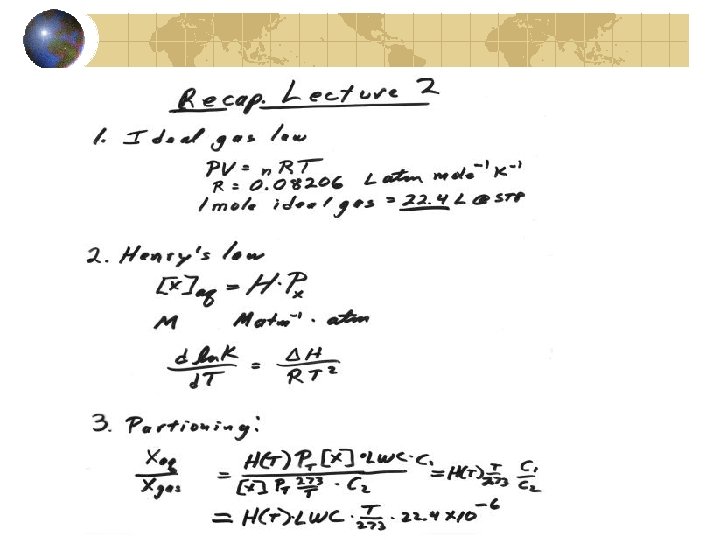 Recap. Lecture 2
1. Ideal gas law
PV = nRT
R = 0.08206 L atm mole⁻¹ K⁻¹
1 mole ideal gas = 22.4 L @ STP
2. Henry's law
[X]aq = H·Px
M Matm⁻¹ · atm
d lnK / dT = ΔH / RT²
3. Partioning:
Xaq / Xgas = H(T) PT [X] · LWC · C1 / [X] PT 273/T · C2 = H(T) T/273 C1/C2
= H(T)·LWC · T/273 · 22.4 x10⁻⁶